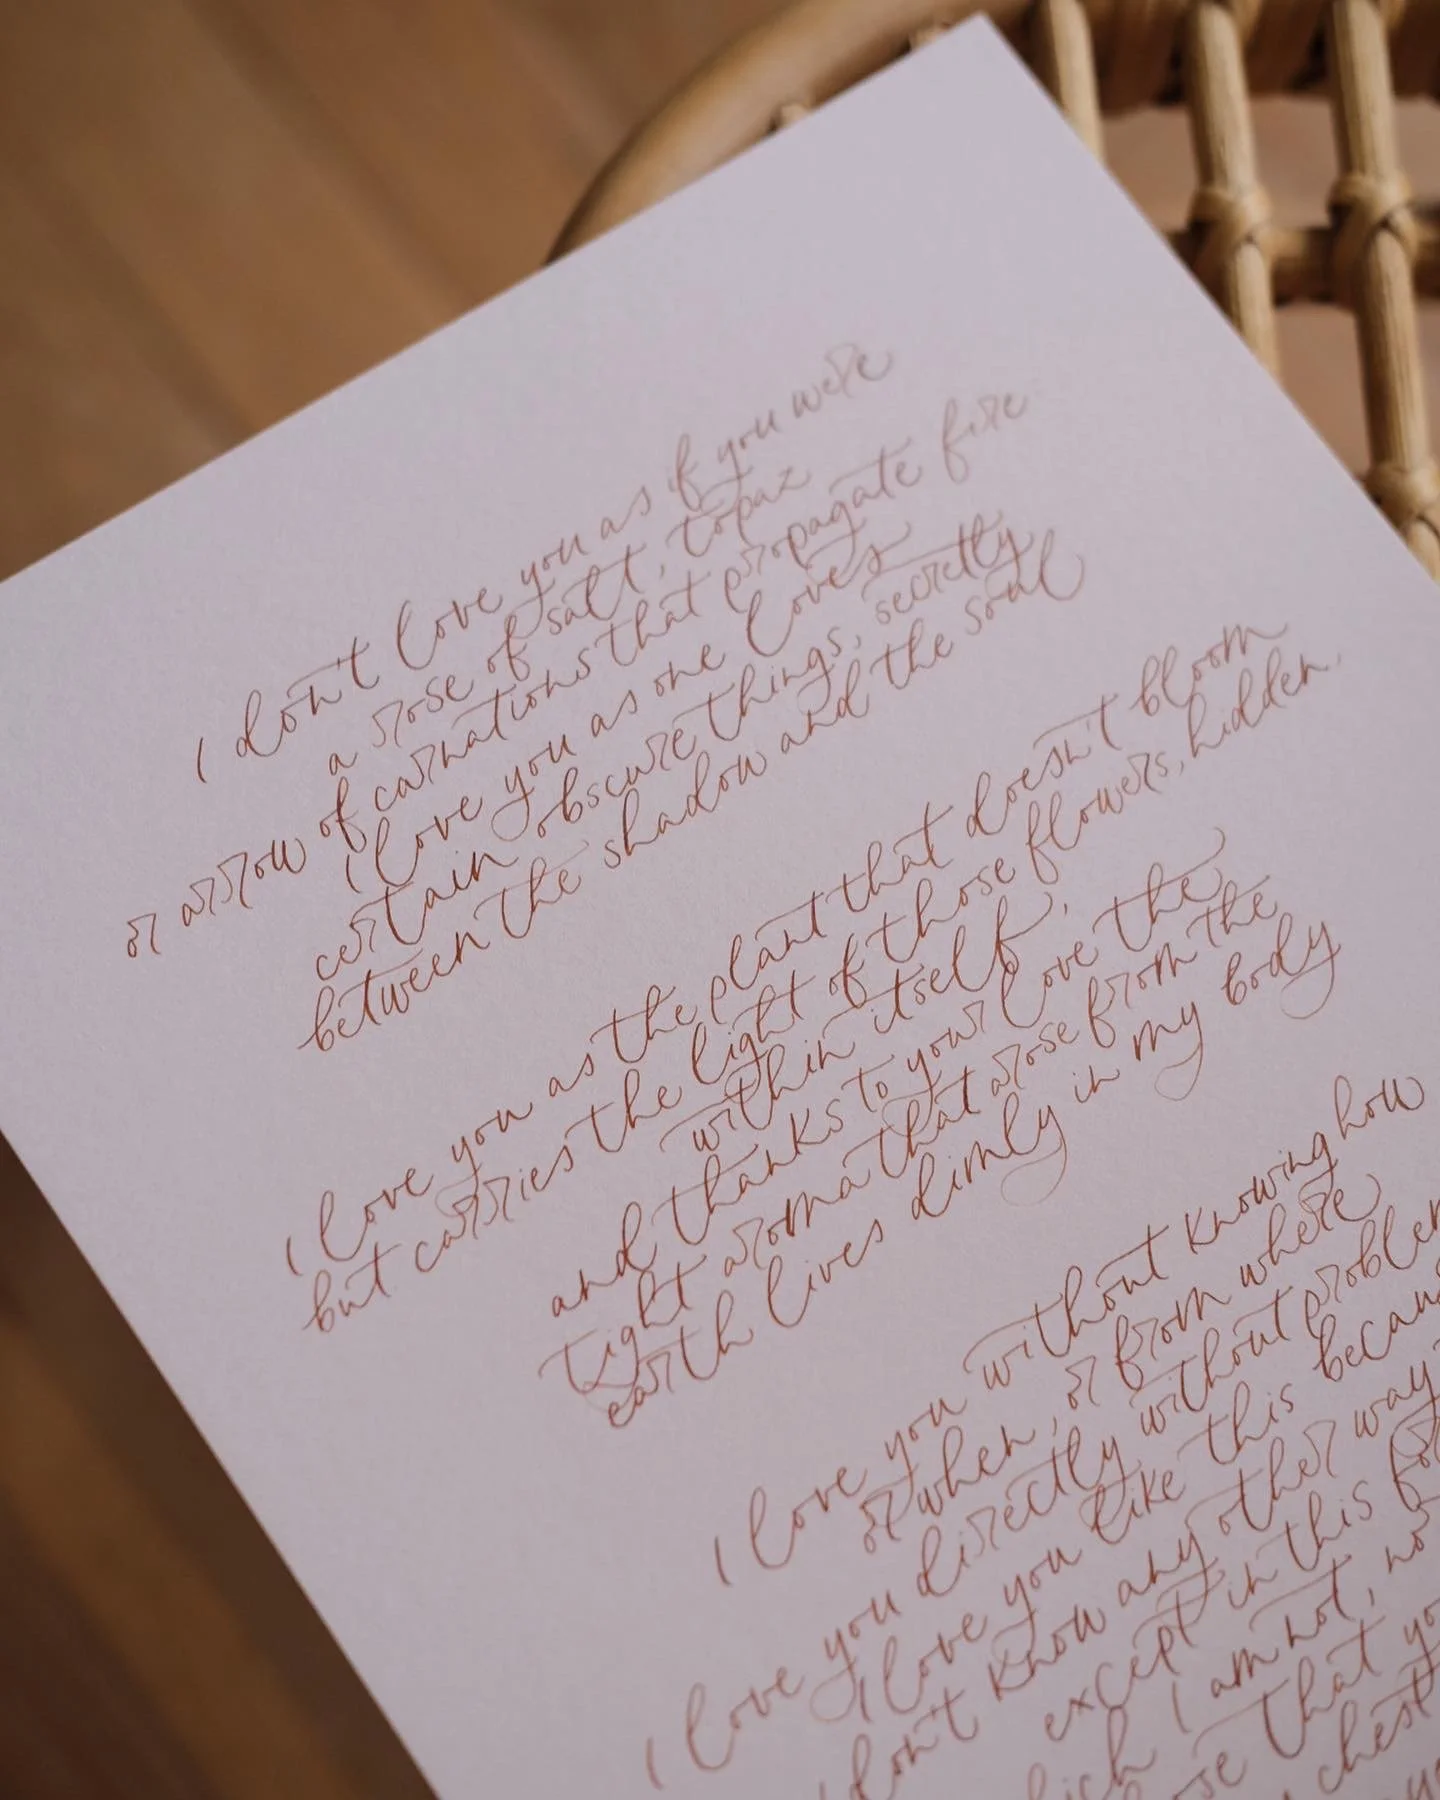 I don't love you as if you were
a rose of salt, topaz
or arrow of carnations that propagate fire
I love you as one loves
certain obscure things, secretly
between the shadow and the soul
I love you as the plant that doesn't bloom
but carries the light of those flowers, hidden,
within itself,
and thanks to your love the
tight aroma that arose from the
earth lives dimly in my body
I love you without knowing how
or when, or from where
I love you directly without
I love you like this
don't know any other way
except in this
I am not,
that
chest